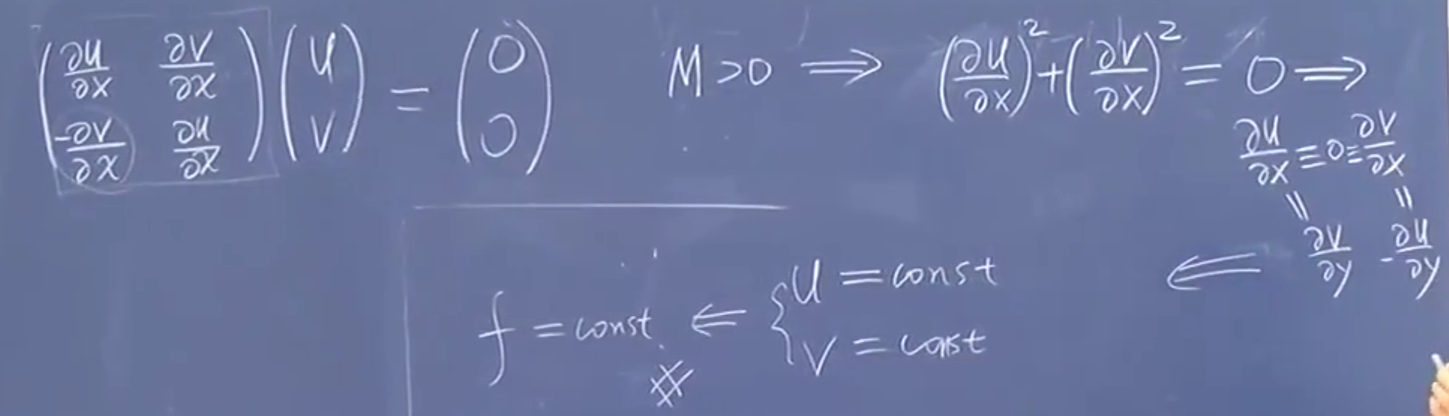 $\begin{pmatrix} \frac{\partial u}{\partial x} & \frac{\partial v}{\partial x} \\ \frac{-\partial v}{\partial x} & \frac{\partial u}{\partial x} \end{pmatrix} \begin{pmatrix} u \\ v \end{pmatrix} = \begin{pmatrix} 0 \\ 0 \end{pmatrix}$ $M > 0 \Rightarrow \left(\frac{\partial u}{\partial x}\right)^2 + \left(\frac{\partial v}{\partial x}\right)^2 = 0 \Rightarrow$
$\frac{\partial u}{\partial x} \equiv 0 \equiv \frac{\partial v}{\partial x}$
$\parallel$ $\parallel$
$\frac{\partial v}{\partial y}$ $-\frac{\partial u}{\partial y}$
$f = const. \Leftarrow \begin{cases} u = const \\ v = const \end{cases} \Leftarrow$
※